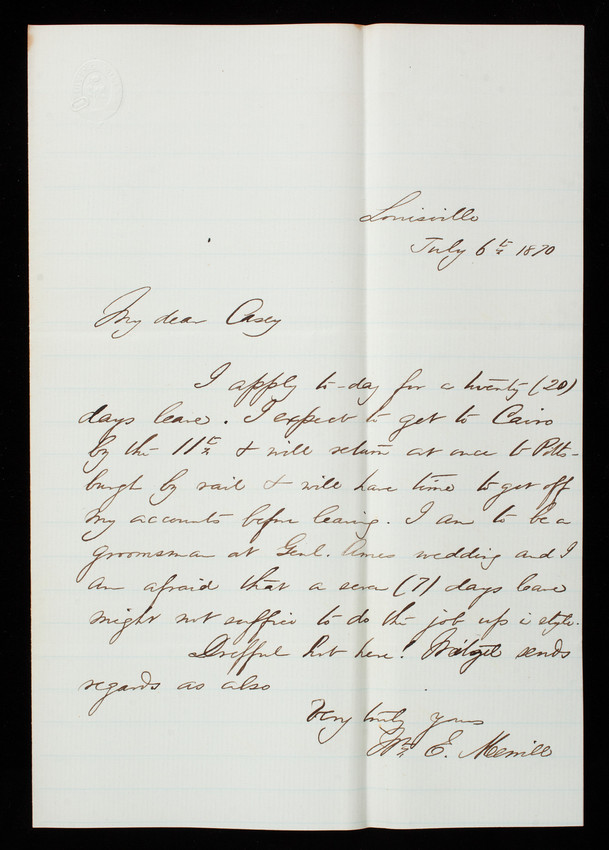 Louisville
July 6th 1870
My dear Casey
I apply to-day for a twenty (20)
days leave. I expect to get to Cairo
by the 11th & will return at once to Pitts-
burgh by rail & will have time to get off
my accounts before leaving. I am to be a
groomsman at Genl. Ames wedding and I
am afraid that a seven (7) days leave
might not suffice to do the job up in style.
Dreffful hot here! Weitzel sends
regards as also
Very truly yours
Wm. E. Merrill